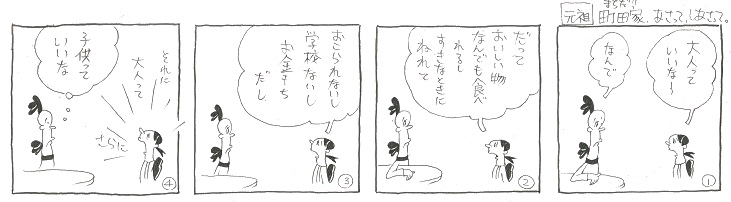 元祖
まちだ!!
町田家、あさって、しあさって。
大人って
いいな〜
なんで
①
だって
おいしい物
なんでも食べ
れるし
すきなときに
ねれて
②
おこられないし
学校ないし
お金もち
だし
③
それに
大人って
さらに
子供って
いいな
④